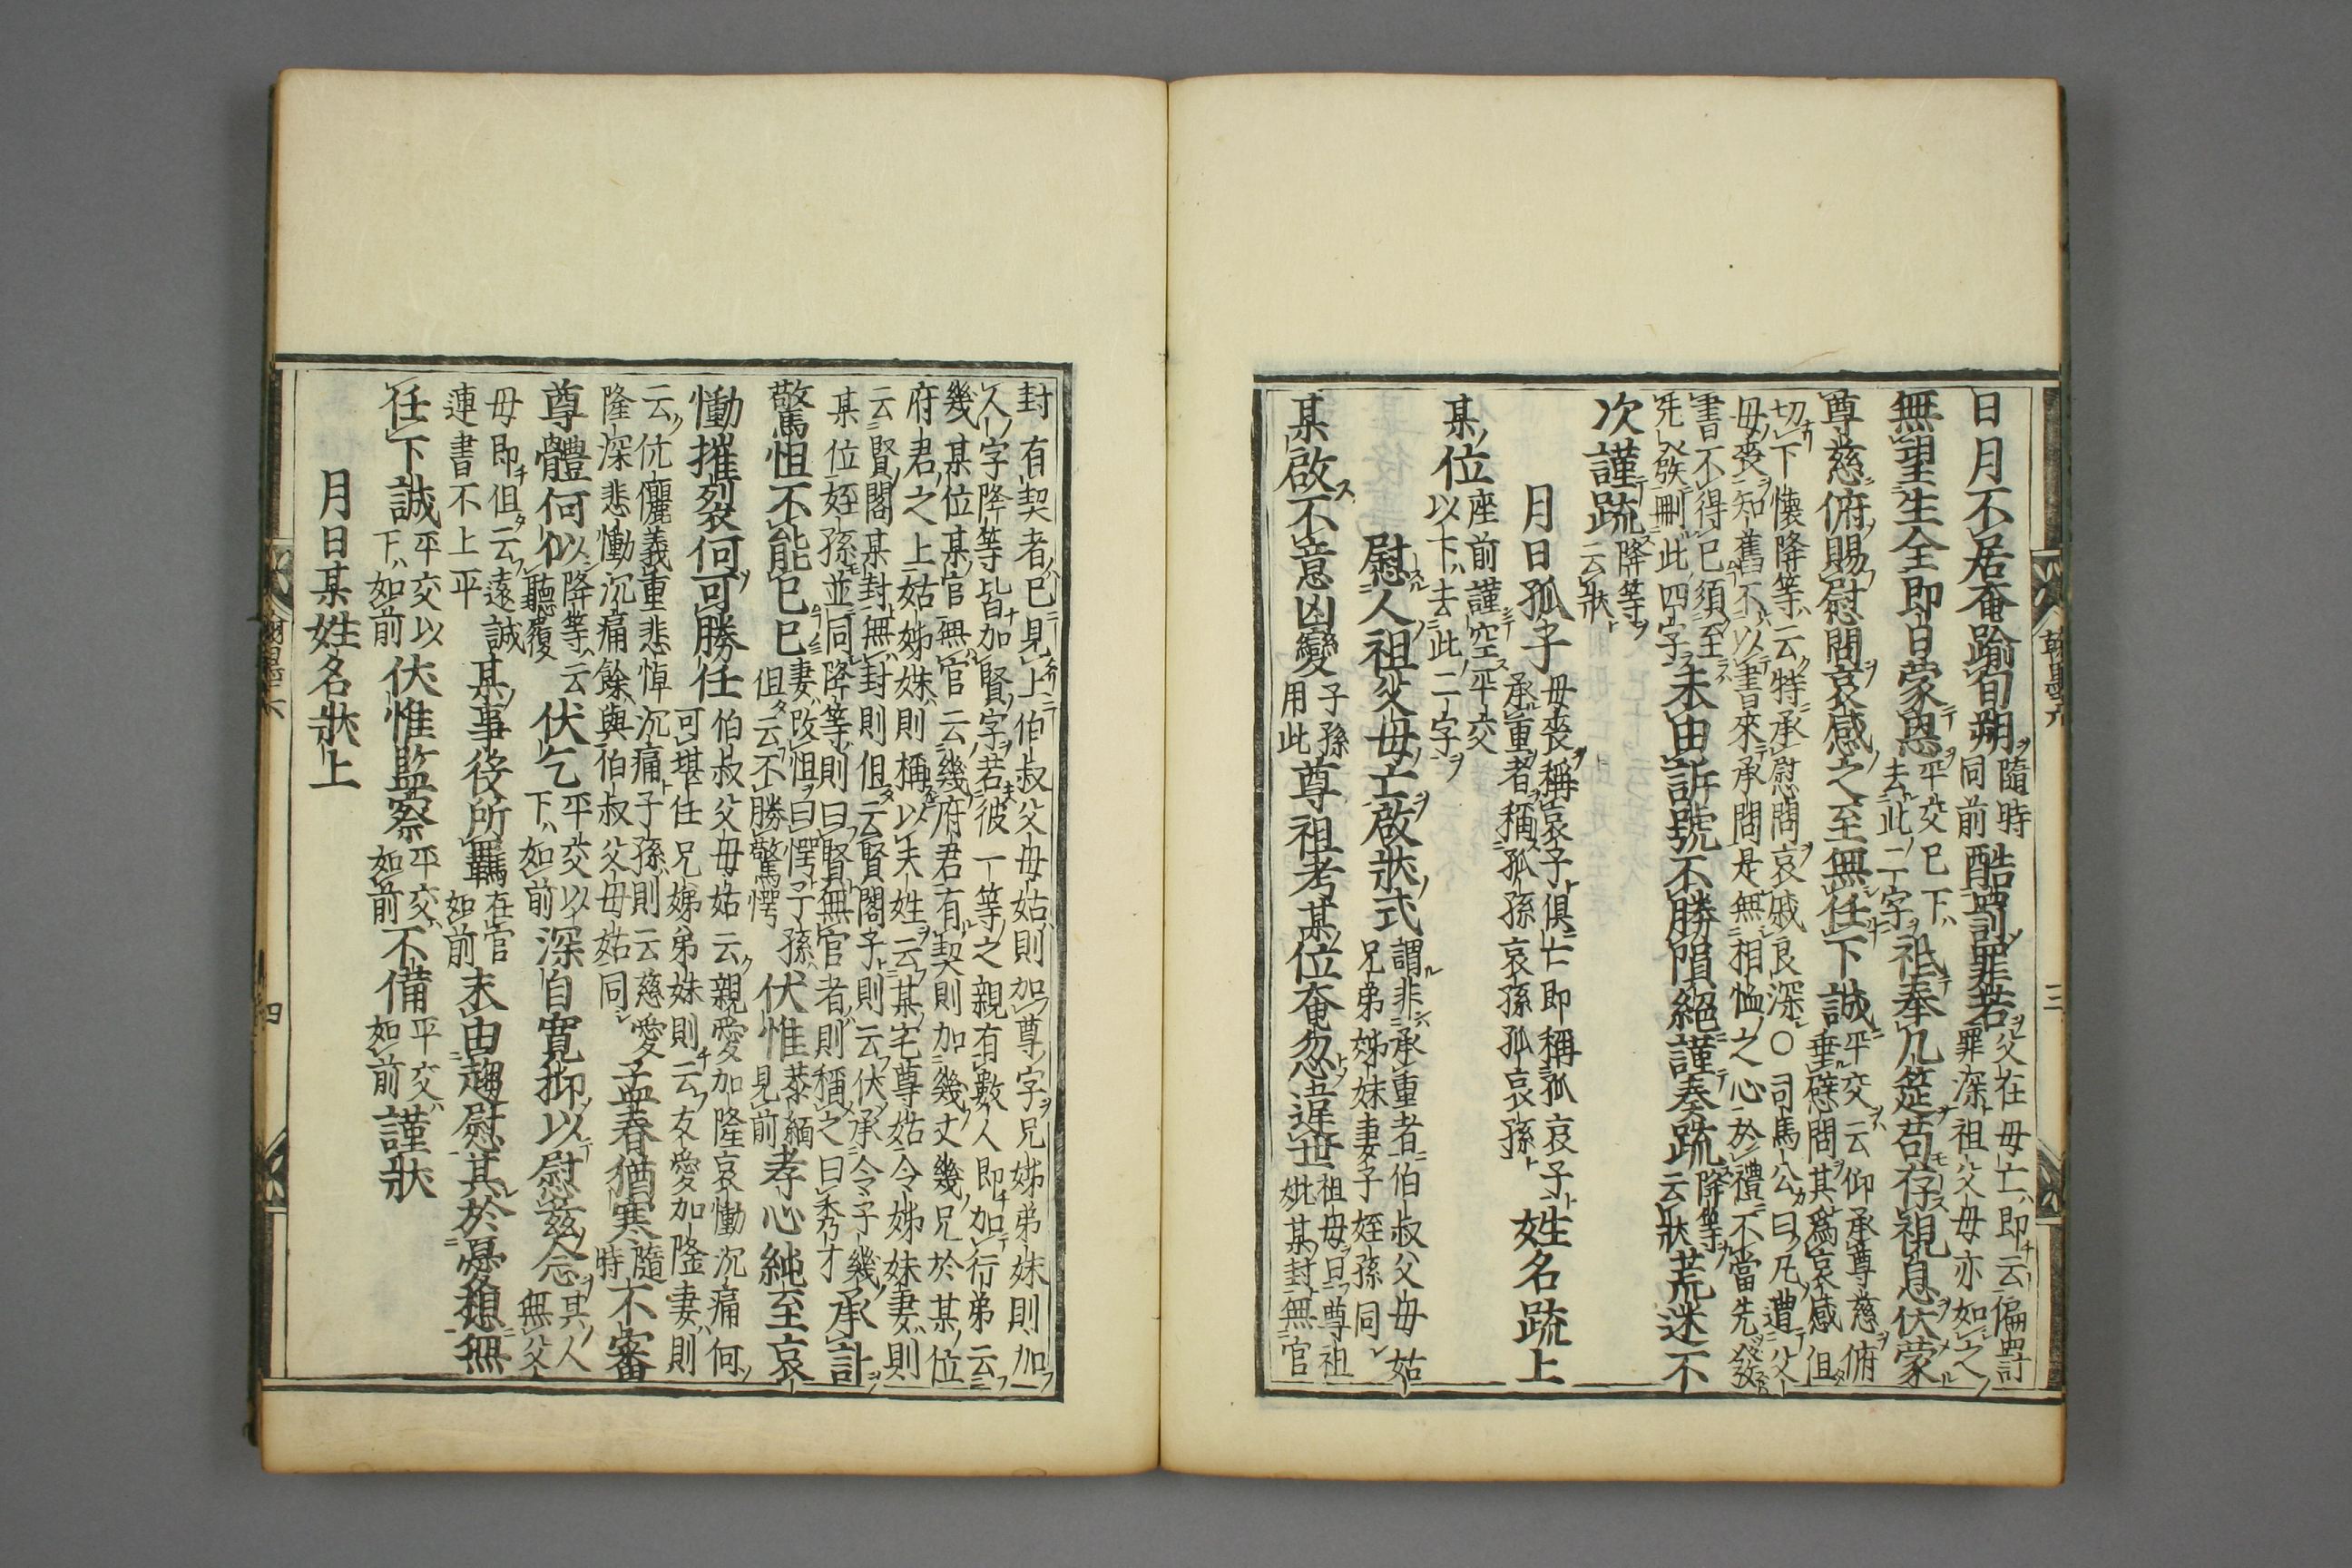 日月不居奄踰旬朔隨時同前酷罰罪苦父在母亡即云偏罰罪深祖父母亦如之
無望生全即日蒙恩平交已下去此二字祗奉几筵苟存視息伏蒙
尊慈俯賜慰問哀感之至無任下誠平交云仰承尊慈俯垂慰問其為哀感但
切下懷降等云特承慰問哀戚良深○司馬公曰凡遭父
母喪知舊不以書來承問是無相恤之心於禮不當先發
書不得已須至先發刪此四字未由訴號不勝隕絕謹奏疏降等云狀荒迷不
次謹疏降等云狀
月日孤子母喪稱哀子俱亡即稱孤哀子承重者稱孤孫哀孫孤哀孫姓名疏上
某位座前謹空平交以下去此二字
慰人祖父母亡啟狀式謂非承重者伯叔父母姑兄弟姊妹妻子姪孫同
某啟不意凶變子孫用此尊祖考某位奄忽違世祖母曰尊祖妣某封無官
封有契者已見上伯叔父母姑則加尊字兄姊弟妹則加
人字降等皆加賢字若彼一等之親有數人即加行弟云
幾某位某官無官云幾府君有契則加幾丈幾兄於某位
府君之上姑姊妹則稱以夫姓云某宅尊姑令姊妹妻則
云賢閤某封無封則但云賢閤子則云伏承令子幾
某位姪孫並同降等則曰賢無官者則稱之曰秀才承訃
驚怛不能已已妻改怛曰愕子孫但云不勝驚愕伏惟恭緬見前孝心純至哀
慟摧裂何可勝任伯叔父母姑云親愛加隆哀慟沉痛何可堪任兄姊弟妹則云友愛加隆妻則
云伉儷義重悲悼沉痛子孫則云慈愛隆深悲慟沉痛餘與伯叔父母姑同孟春猶寒隨時不審
尊體何似降等云伏乞平交以下如前深自寬抑以慰慈念其人無父
母即但云遠誠連書不上平某事役所羈在官如前末由趨慰其於憂想無
任下誠平交以下如前伏惟監察平交如前不備平交如前謹狀
月日某姓名狀上
三
四